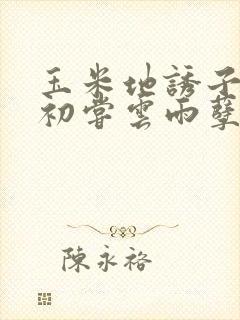 玉米地誘子
初嘗雲雨孽
陳永裕